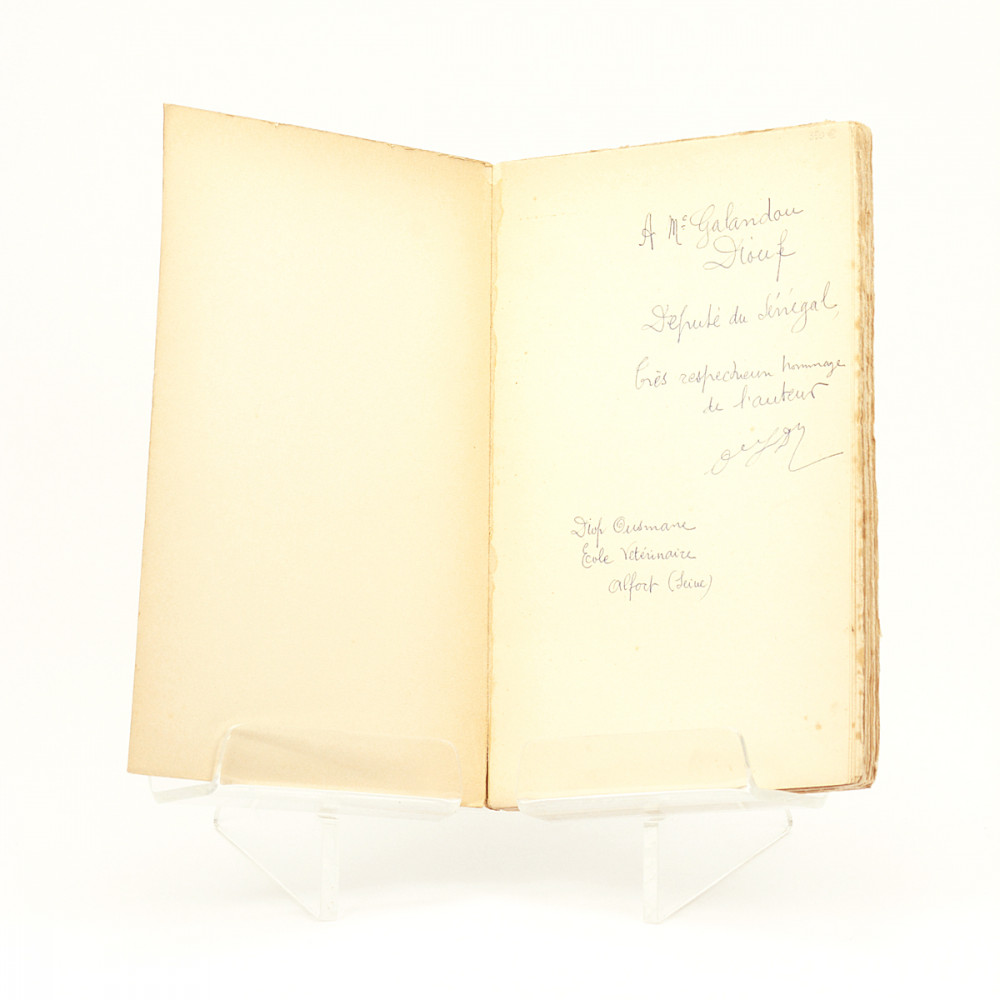 A Mr Galandou
Diouf
Député du Sénégal,
très respectueux hommage
de l'auteur
Diop Ousmane
Ecole Vétérinaire
Alfort (Seine)